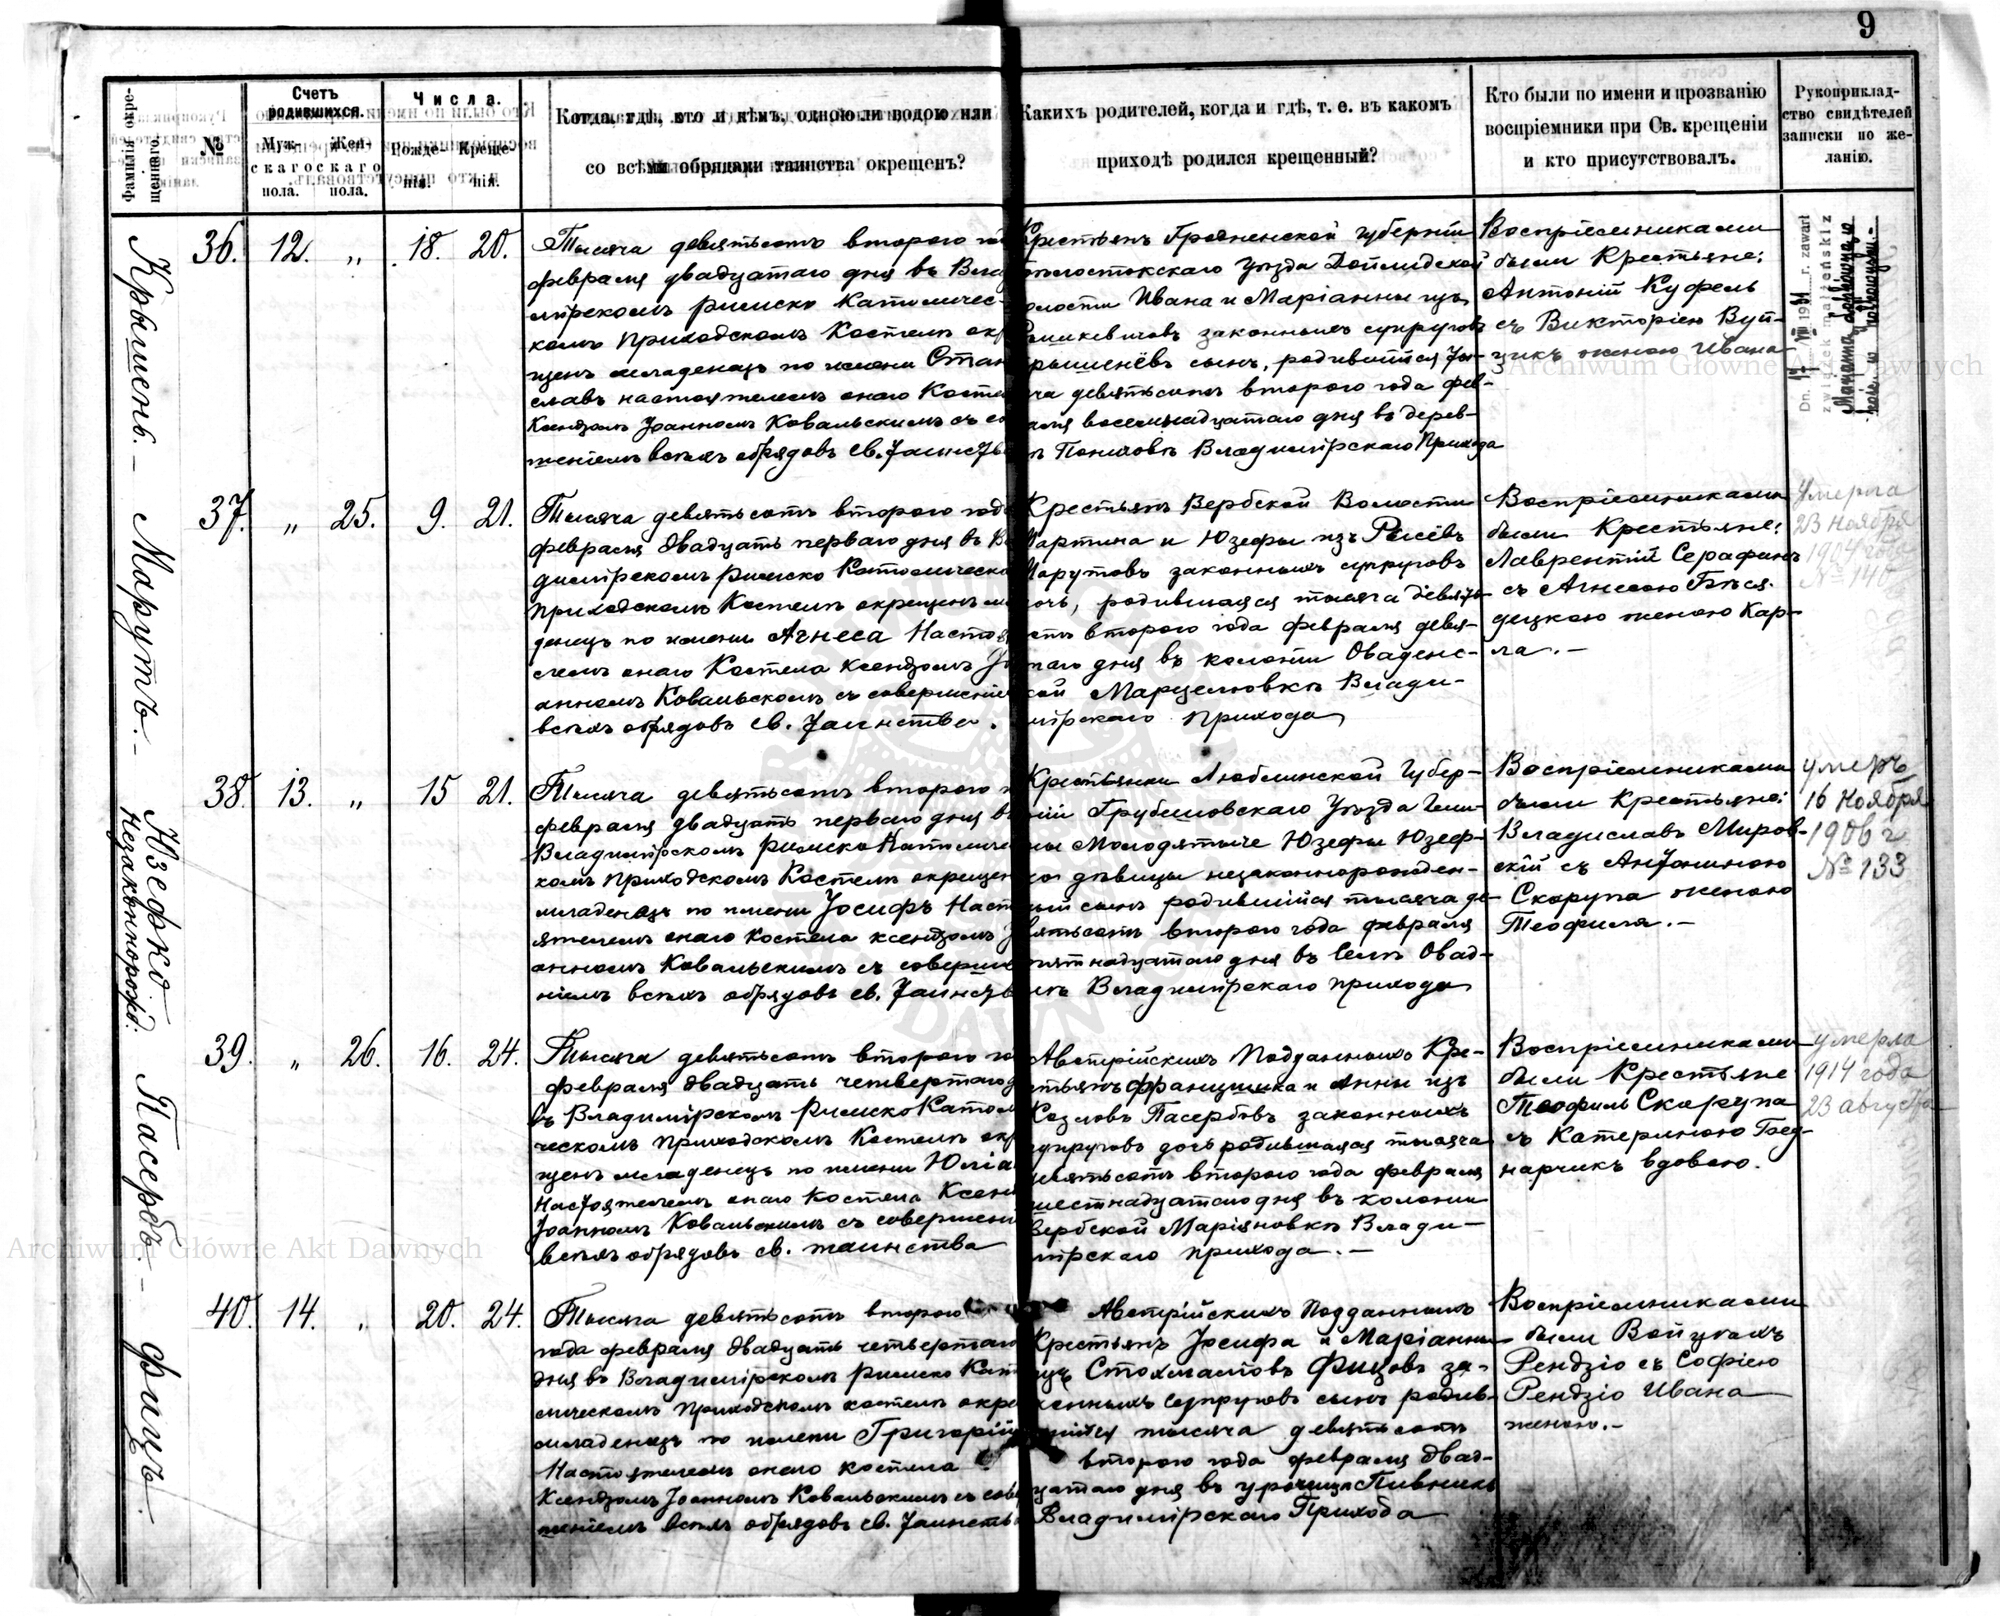 9
Фамилія окрещеннаго.
№
Счетъ родившихся.
Мужскаго пола.
Женскаго пола.
Числа.
Рожденія.
Крещенія.
Когда, гдѣ, кто и кѣмъ, одною ли водою или
со всѣми обрядами таинства окрещенъ?
Какихъ родителей, когда и гдѣ, т. е. въ какомъ
приходѣ родился крещенный?
Кто были по имени и прозванію
воспріемники при Св. крещеніи
и кто присутствовалъ.
Рукоприклад-
ство свидѣтелей
записки по же-
ланію.
Крышень. –
36. 12. „ 18. 20.
Тысяча девятьсотъ второго
февраля двадцатаго дня въ
мірскомъ римско католичес-
комъ приходскомъ костелѣ
щенъ младенецъ по имени
славъ настоятелемъ онаго
Ксендзомъ Іоанномъ Ковальскимъ съ
шеніемъ всѣхъ обрядовъ св.
Крестьянъ Гродненской губерніи
Уѣзда Дойлидской
Ивана и Маріанны изъ
законныхъ супруговъ
сынъ, родившійся
девятьсотъ второго года фев-
восемнадцатаго дня въ дерев-
Владимірскаго Прихода
Воспріемниками
были Крестьяне:
Антоній Куфель
съ Викторіею Вуй-
цикъ женою Ивана
Dn. 1931 r. zawarł
związek małżeński z
Марутъ. –
37. „ 25. 9. 21.
Тысяча девятьсотъ второго
февраля двадцать перваго дня въ
димірскомъ римско Католическо
приходскомъ Костелѣ окрещенъ
денецъ по имени Агнеса
телемъ онаго Костела Ксендзомъ
анномъ Ковальскимъ съ совершеніе
всѣхъ обрядовъ св. Таинства.
Крестьянъ Вербской Волости
Мартина и Юзефы изъ Рысёвъ
Марутовъ законныхъ супруговъ
дочь, родившаяся тысяча девять-
сотъ второго года февраля девя-
таго дня въ колоніи Оваденс-
кой Марцелювкѣ Влади-
мірскаго прихода
Воспріемниками
были Крестьяне:
Лаврентій Серафинъ
съ Агнесою
децкою женою Кар-
ла. –
Умерла
23 ноября
1904 года
№ 140
Юзефко
Незаконнорожд:
38. 13. „ 15 21.
Тысяча девятьсотъ второго
февраля двадцать перваго дня
Владимірскомъ римско
комъ приходскомъ Костелѣ
младенецъ по имени Іосифъ
ятелемъ онаго костела ксендзомъ
анномъ Ковальскимъ съ соверше
ніемъ всѣхъ обрядовъ св.
Крестьянки Люблинской Губер-
ніи Грубешовскаго Уѣзда Гми-
ны Молодятыче Юзефы Юзеф-
ко дѣвицы незаконнорожден-
ный сынъ родившійся тысяча де-
вятьсотъ второго года февраля
пятнадцатаго дня въ селѣ Овад-
Владимірскаго прихода
Воспріемниками
были Крестьяне:
Владиславъ Миров-
скій съ Антониною
Скорупа женою
Теофиля. –
умеръ
16 Ноября
1906 г
№ 133
Пасербъ. –
39. „ 26. 16. 24.
Тысяча девятьсотъ второго
февраля двадцать четвертаго
въ Владимірскомъ римско
ческомъ приходскомъ Костелѣ
щенъ младенецъ по имени
Настоятелемъ онаго костела
Іоанномъ Ковальскимъ съ
всѣхъ обрядовъ св. таинства
Австрійскихъ Подданныхъ Кре-
стьянъ францишка и Анны изъ
Козловъ Пасербовъ законныхъ
супруговъ дочь родившаяся тысяча
девятьсотъ второго года февраля
шестнадцатаго дня въ колоніи
Вербской Маріяновкѣ Влади-
мірскаго прихода. –
Воспріемниками
были Крестьяне
Теофиль Скорупа
съ Катериною Бед-
нарчикъ вдовою.
умерла
1914 года
23 августа
Фицъ.
40. 14. „ 20. 24.
Тысяча девятьсотъ второго
года февраля двадцать четвертаго
дня въ Владимірскомъ римско
лическомъ приходскомъ костелѣ
младенецъ по имени Григорій
Настоятелемъ онаго костела
Ксендзомъ Іоанномъ Ковальскимъ съ
шеніемъ всѣхъ обрядовъ св.
Австрійскихъ Подданныхъ
Крестьянъ Іосифа и Маріанны
изъ Стохмаловъ Фицовъ за-
конныхъ супруговъ сынъ родив-
шійся тысяча девятьсотъ
второго года февраля двад-
цатаго дня въ урочищѣ
Владимірскаго Прихода
Воспріемниками
были Войцехъ
Рендзіо съ Софіею
Рендзіо Ивана
женою. –
Archiwum Główne Akt Dawnych
Archiwum Główne Akt Dawnych